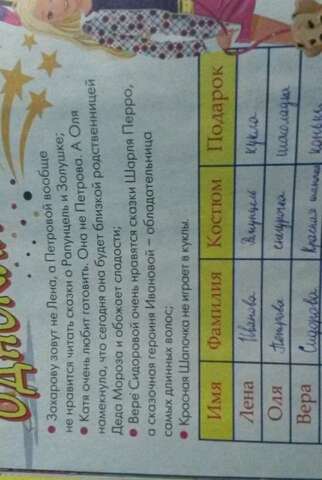 Захарову зовут не Лена, а Петровой вообще
не нравится читать сказки о Рапунцель и Золушке;
Катя очень любит готовить. Она не Петрова. А Оля
намекнула, что сегодня она будет близкой родственницей
Деда Мороза и обожает сладости;
Вере Сидоровой очень нравятся сказки Шарля Перро,
а сказочная героиня Ивановой – обладательница
самых длинных волос;
Красная Шапочка не играет в куклы.
Имя Фамилия Костюм Подарок
Лена Иванова кукла
Оля Петрова снегурочка шоколадка
Вера Сидорова Красная коньки